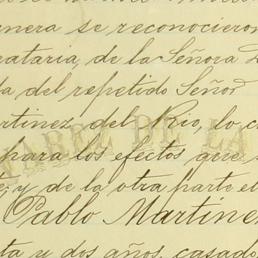 nera se reconocieron
rataria de la Señora
da del repetido Señor
artinez del Rio, lo c
para los efectos que
y de la otra parte el
Pablo Martine
ta y dos años, casado